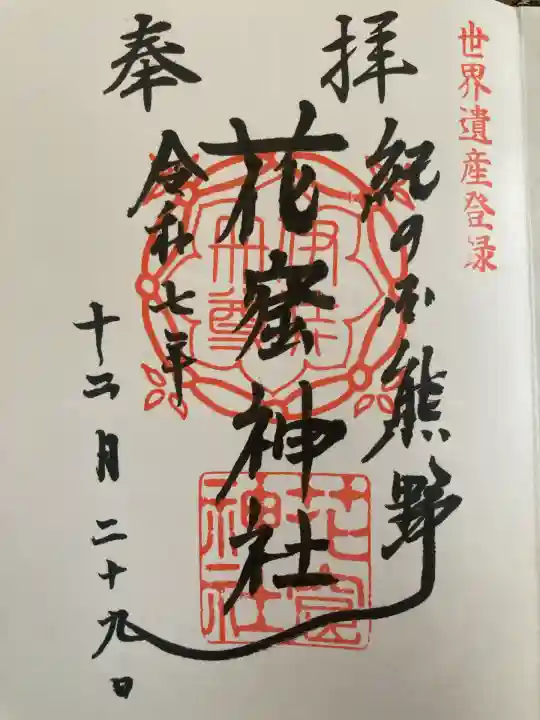 世界遺産登録
奉拝
紀の国熊野
花窟神社
令和七年
十二月二十九日
伊弉
冊尊
花窟
神社